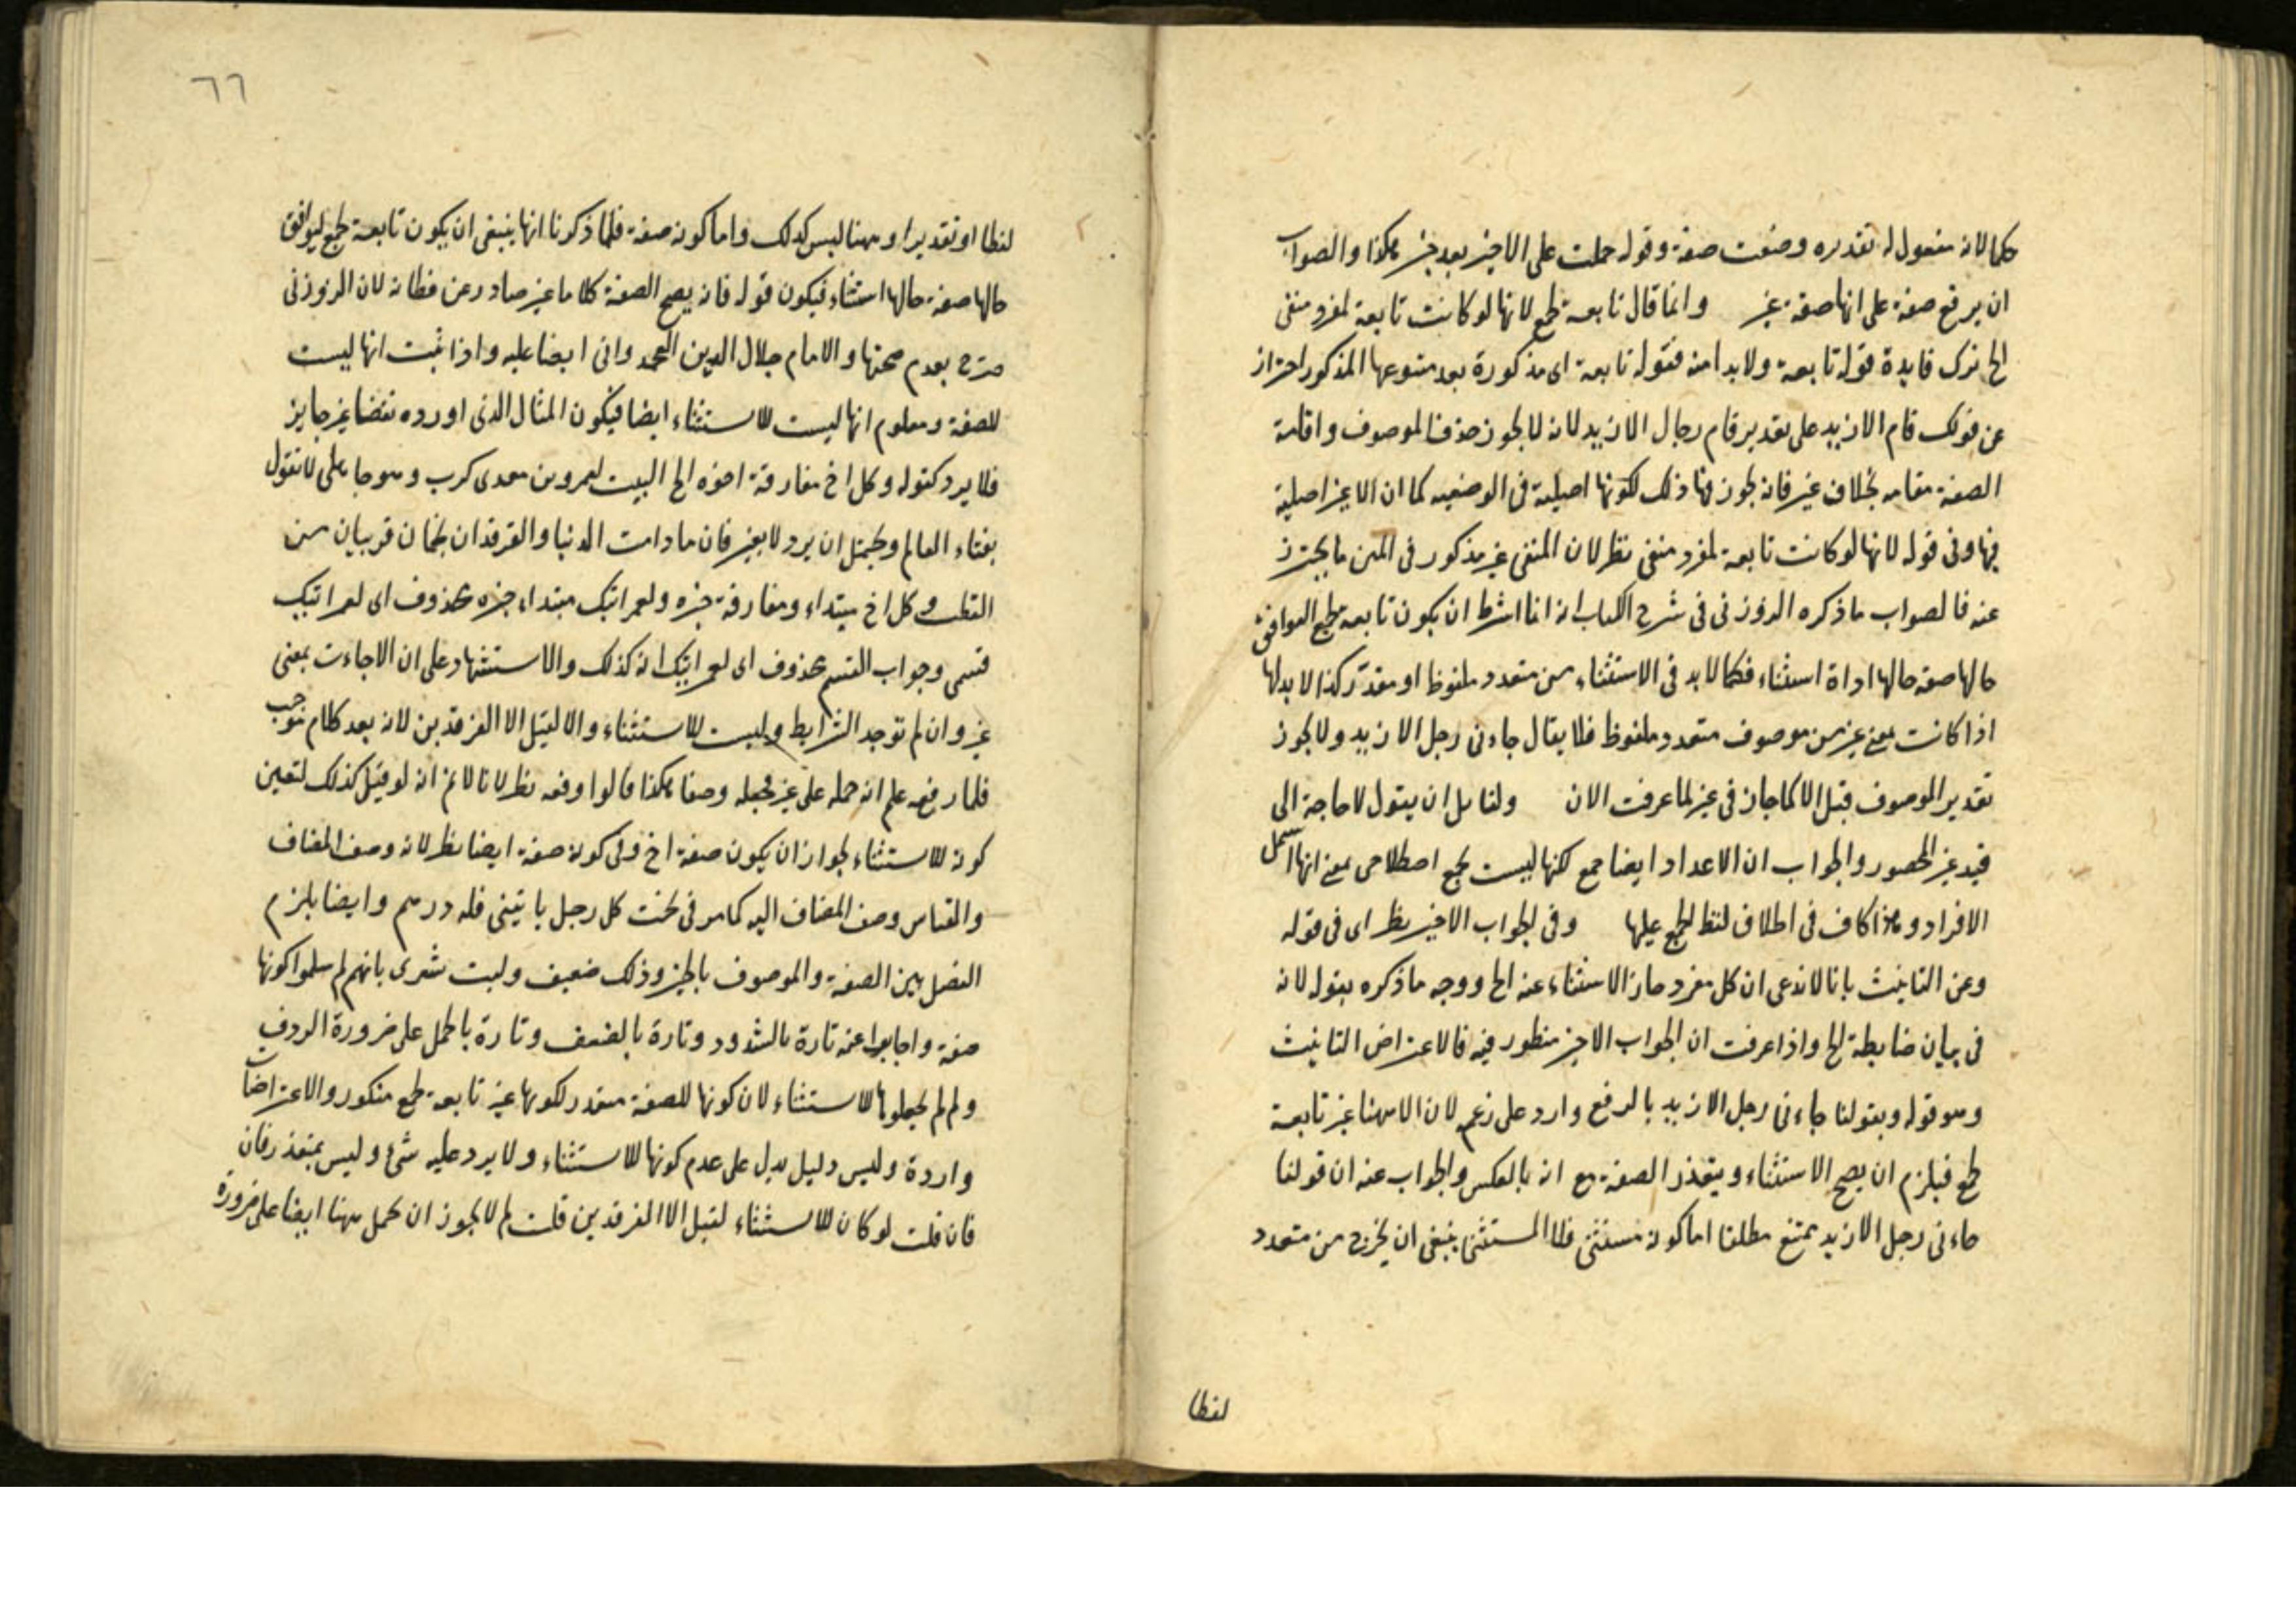 حكما لانه مفعول له تقديره وضعت صفة وقوله حملت على الاخير بعد خبر هكذا والصواب
ان يرفع صفة على انها صفة غير وانما قال تابعة لجمع لانها لو كانت تابعة لمفرد منفى
الخ ترك فايدة قوله تابعة ولا بدا منه فقوله تابعة اى مذكورة بعد متبوعها المذكور احتراز
عن قولك قام الا زيد على تقدير قام رجال الا زيد لانه لا يجوز حذف الموصوف واقامة
الصفة مقامه بخلاف غير فانه يجوز فيها ذلك لكونها اصيلية فى الوصفيه كما ان الا غير اصلية
فيها وفى قوله لانها لو كانت تابعة لمفرد منفى نظر لان المنفى غير مذكور فى المتن ما يحترز
عنه فالصواب ما ذكره الزوزنى فى شرح الكتاب انه انما اشرط ان يكون تابعه لجمع ليوافق
حالها صفة حالها اداة استثناء فكما لا بد فى الاستثناء من متعدد ملفوظا او مقدّر كذا لا بد لها
اذا كانت بمعنى غير من موصوف متعدد ملفوظ فلا يقال جاءنى رجل الا زيد ولا يجوز
تقدير الموصوف قبل الا كما جاز فى غير لما عرفت الان ولقايل ان يقول لا حاجة الى
قيد غير المحصور والجواب ان الاعداد ايضا جمع لكنها ليست بجمع اصطلاحى بمعنى انها اسمل
الافراد وهذا كاف فى اطلاق لفظ الجمع عليها وفى الجواب الاخير نظر اى فى قوله
وعن التانيث بانا لا ندعى ان كل مفرد جاز الاستثناء عنه الخ ووجه ما ذكره بقوله لانه
فى بيان ضابطة الخ واذا عرفت ان الجواب الاخير منظور فيه فالاعتراض التانيث
وهو قوله وبقولنا جاءنى رجل الا زيد بالرفع وارد على زعم لان الا ههنا غير تابعة
لجمع فيلزم ان يصح الاستثناء ويتعذر الصفة مع انه بالعكس والجواب عنه ان قولنا
جاءنى رجل الا زيد يمتنع مطلقا اما كونه مستثنى فلا المستثنى ينبغى ان يخرج من متعدد
لفظا
٦٦
لفظا او تقديرا وههنا ليس كذلك واما كونه صفة فلما ذكرنا انها ينبغى ان يكون تابعة لجمع ليوافق
حالها صفة حالها استثناء فيكون قوله فانه يصح الصفة كلاما غير صادر عن فطانة لان الزوزنى
صرّح بعدم صحتها والامام جلال الدين العجدوانى ايضا عليه واذا ثبت انها ليست
للصفة ومعلوم انها ليست للاستثناء ايضا فيكون المثال الذى اورده نقضا غير جايز
فلا يرد كقوله وكل اخ مفارقة اخوه الخ البيت لعمرو بن معدى كرب وهو جاهلى لا نقول
بفناء العالم ويحتمل ان يرد لا بغير فان ما دامت الدنيا والفرقدان نجمان قريبان من
القطب وكل اخ مبتداء ومفارقة خبره ولعمر ابيك مبتداء خبره محذوف اى لعمر ابيك
قسمى وجواب القسم محذوف اى لعمر ابيك انه كذلك والاستشهاد على ان الا جاءت بمعنى
غير وان لم توجد الشرايط وليست للاستثناء والا لقيل الا الفرقدين لانه بعد كلام موجب
فلما رفعه علم انه حمله على غير فجعله وصفا هكذا قالوا وفيه نظر لانا لا نم انه لو قيل كذلك لتعين
كونه للاستثناء لجواز ان يكون صفة اخ وفى كونه صفة ايضا نظر لانه وصف المضاف
والقياس وصف المضاف اليه كما مر فى بحث كل رجل ياتينى فله درهم وايضا يلزم
الفصل بين الصفة والموصوف بالخبر وذلك ضعيف وليت شعرى بانهم لم سلموا كونها
صفة واجابوا عنه تارة بالشذوذ وتارة بالضعف وتارة بالحمل على ضرورة الردف
ولم لم يجعلوها للاستثناء لان كونها للصفة متعذر لكونها غير تابعة لجمع منكور والاعتراضات
واردة وليس دليل يدل على عدم كونها للاستثناء ولا يرد عليه شئ وليس بمتعذر فان
فان قلت لو كان للاستثناء لقيل الا الفرقدين قلت لم لا يجوز ان يحمل ههنا ايضا على ضرورة